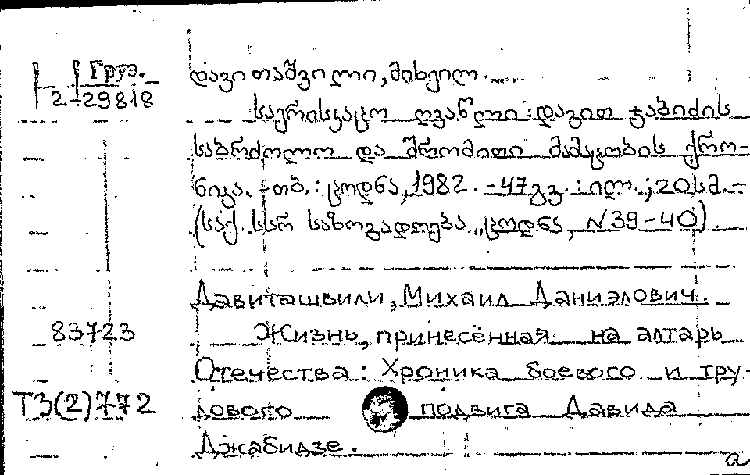 Груз.
2-29818
დავითაშვილი, მიხეილ.
საერისკაცო ღვაწლი: დავით ჯაბიძის
საბრძოლო და შრომითი მამაცობის ქრო-
ნიკა. -თბ.: ცოდნა, 1982. -47გვ.: ილ.; 20სმ.-
(საქ. სსრ საზოგადოება „ცოდნა, N39-40)
Давиташвили, Михаил Даниэлович.
83723 Жизнь, принесённая на алтарь
Отечества: Хроника боевого и тру-
Т3(2)772 дового подвига Давида
Джабидзе.
а